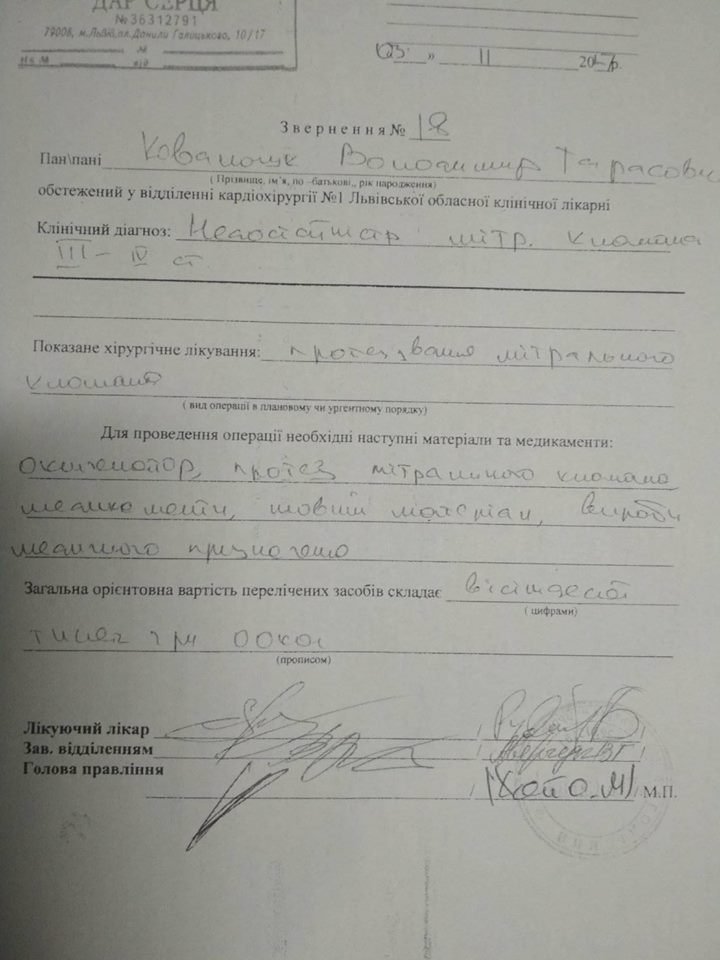 ДАР СЕРЦЯ
№36312791
79008, м.Львів,пл.Данили Галицького, 10/17
№
від
"03" 11 2017р.
Звернення № 18
Пан\пані Ковальчук Володимир Тарасович
( Прізвище, ім'я, по –батькові,, рік народження)
обстежений у відділенні кардіохірургії №1 Львівської обласної клінічної лікарні
Клінічний діагноз: мітр. клапана
III – IV ст
Показане хірургічне лікування: протезування мітрального
клапана
( вид операції в плановому чи ургентному порядку)
Для проведення операції необхідні наступні матеріали та медикаменти:
оксигенатор, протез мітрального клапана
медикаменти, шовний матеріал, вироби
медичного призначення
Загальна орієнтовна вартість перелічених засобів складає вісімдесят
( цифрами)
тисяч грн 00коп
(прописом)
Лікуючий лікар
Зав. відділенням
Голова правління
М.П.